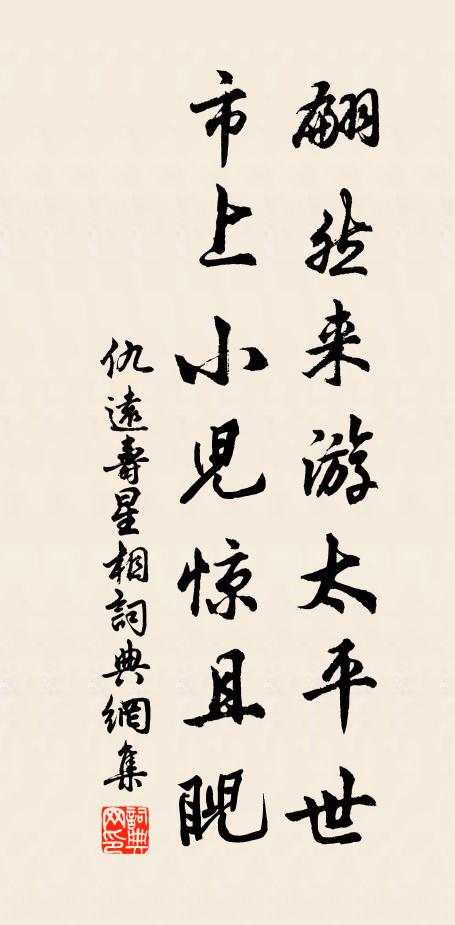 翩然来游太平世
市上小児惊且睨
仇遠壽星相詞典網集
詞典网印